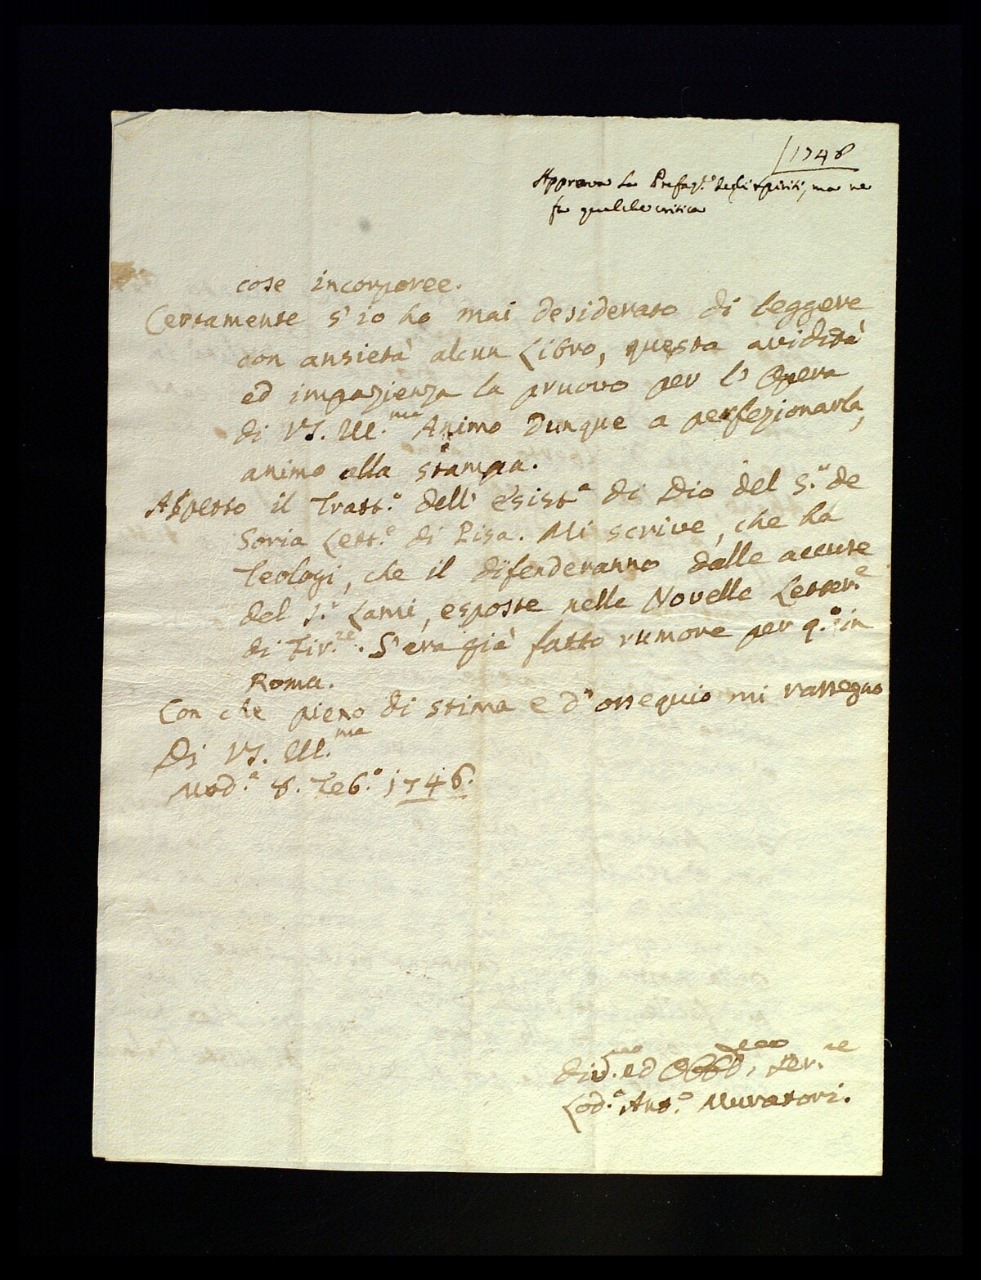 1746
Approva la Prefaz.e degli spiriti, ma ne
fa qualche critica
cose incorporee.
Certamente s'io ho mai desiderato di leggere
con ansietà alcun Libro, questa avidità
ed impazienza la pruovo per l'Opera
di V.S. Ill.ma Animo dunque a perfezionarla,
animo alla stampa.
Aspetto il Tratt.o dell'esist.a di Dio del S.r de
Soria Lett.e di Pisa. Mi scrive, che ha
Teologi, che il difenderanno dalle accuse
del S.r Lami, esposte nelle Novelle Letter.e
di Fir.ze. S'era già fatto rumore per q.o in
Roma.
Con che pieno di stima e d'ossequio mi rassegno
Di V.S. Ill.ma
Mod.a 8. Feb.o 1746.
Div.mo ed Obb.mo Ser.re
Lod.o Ant.o Muratori.